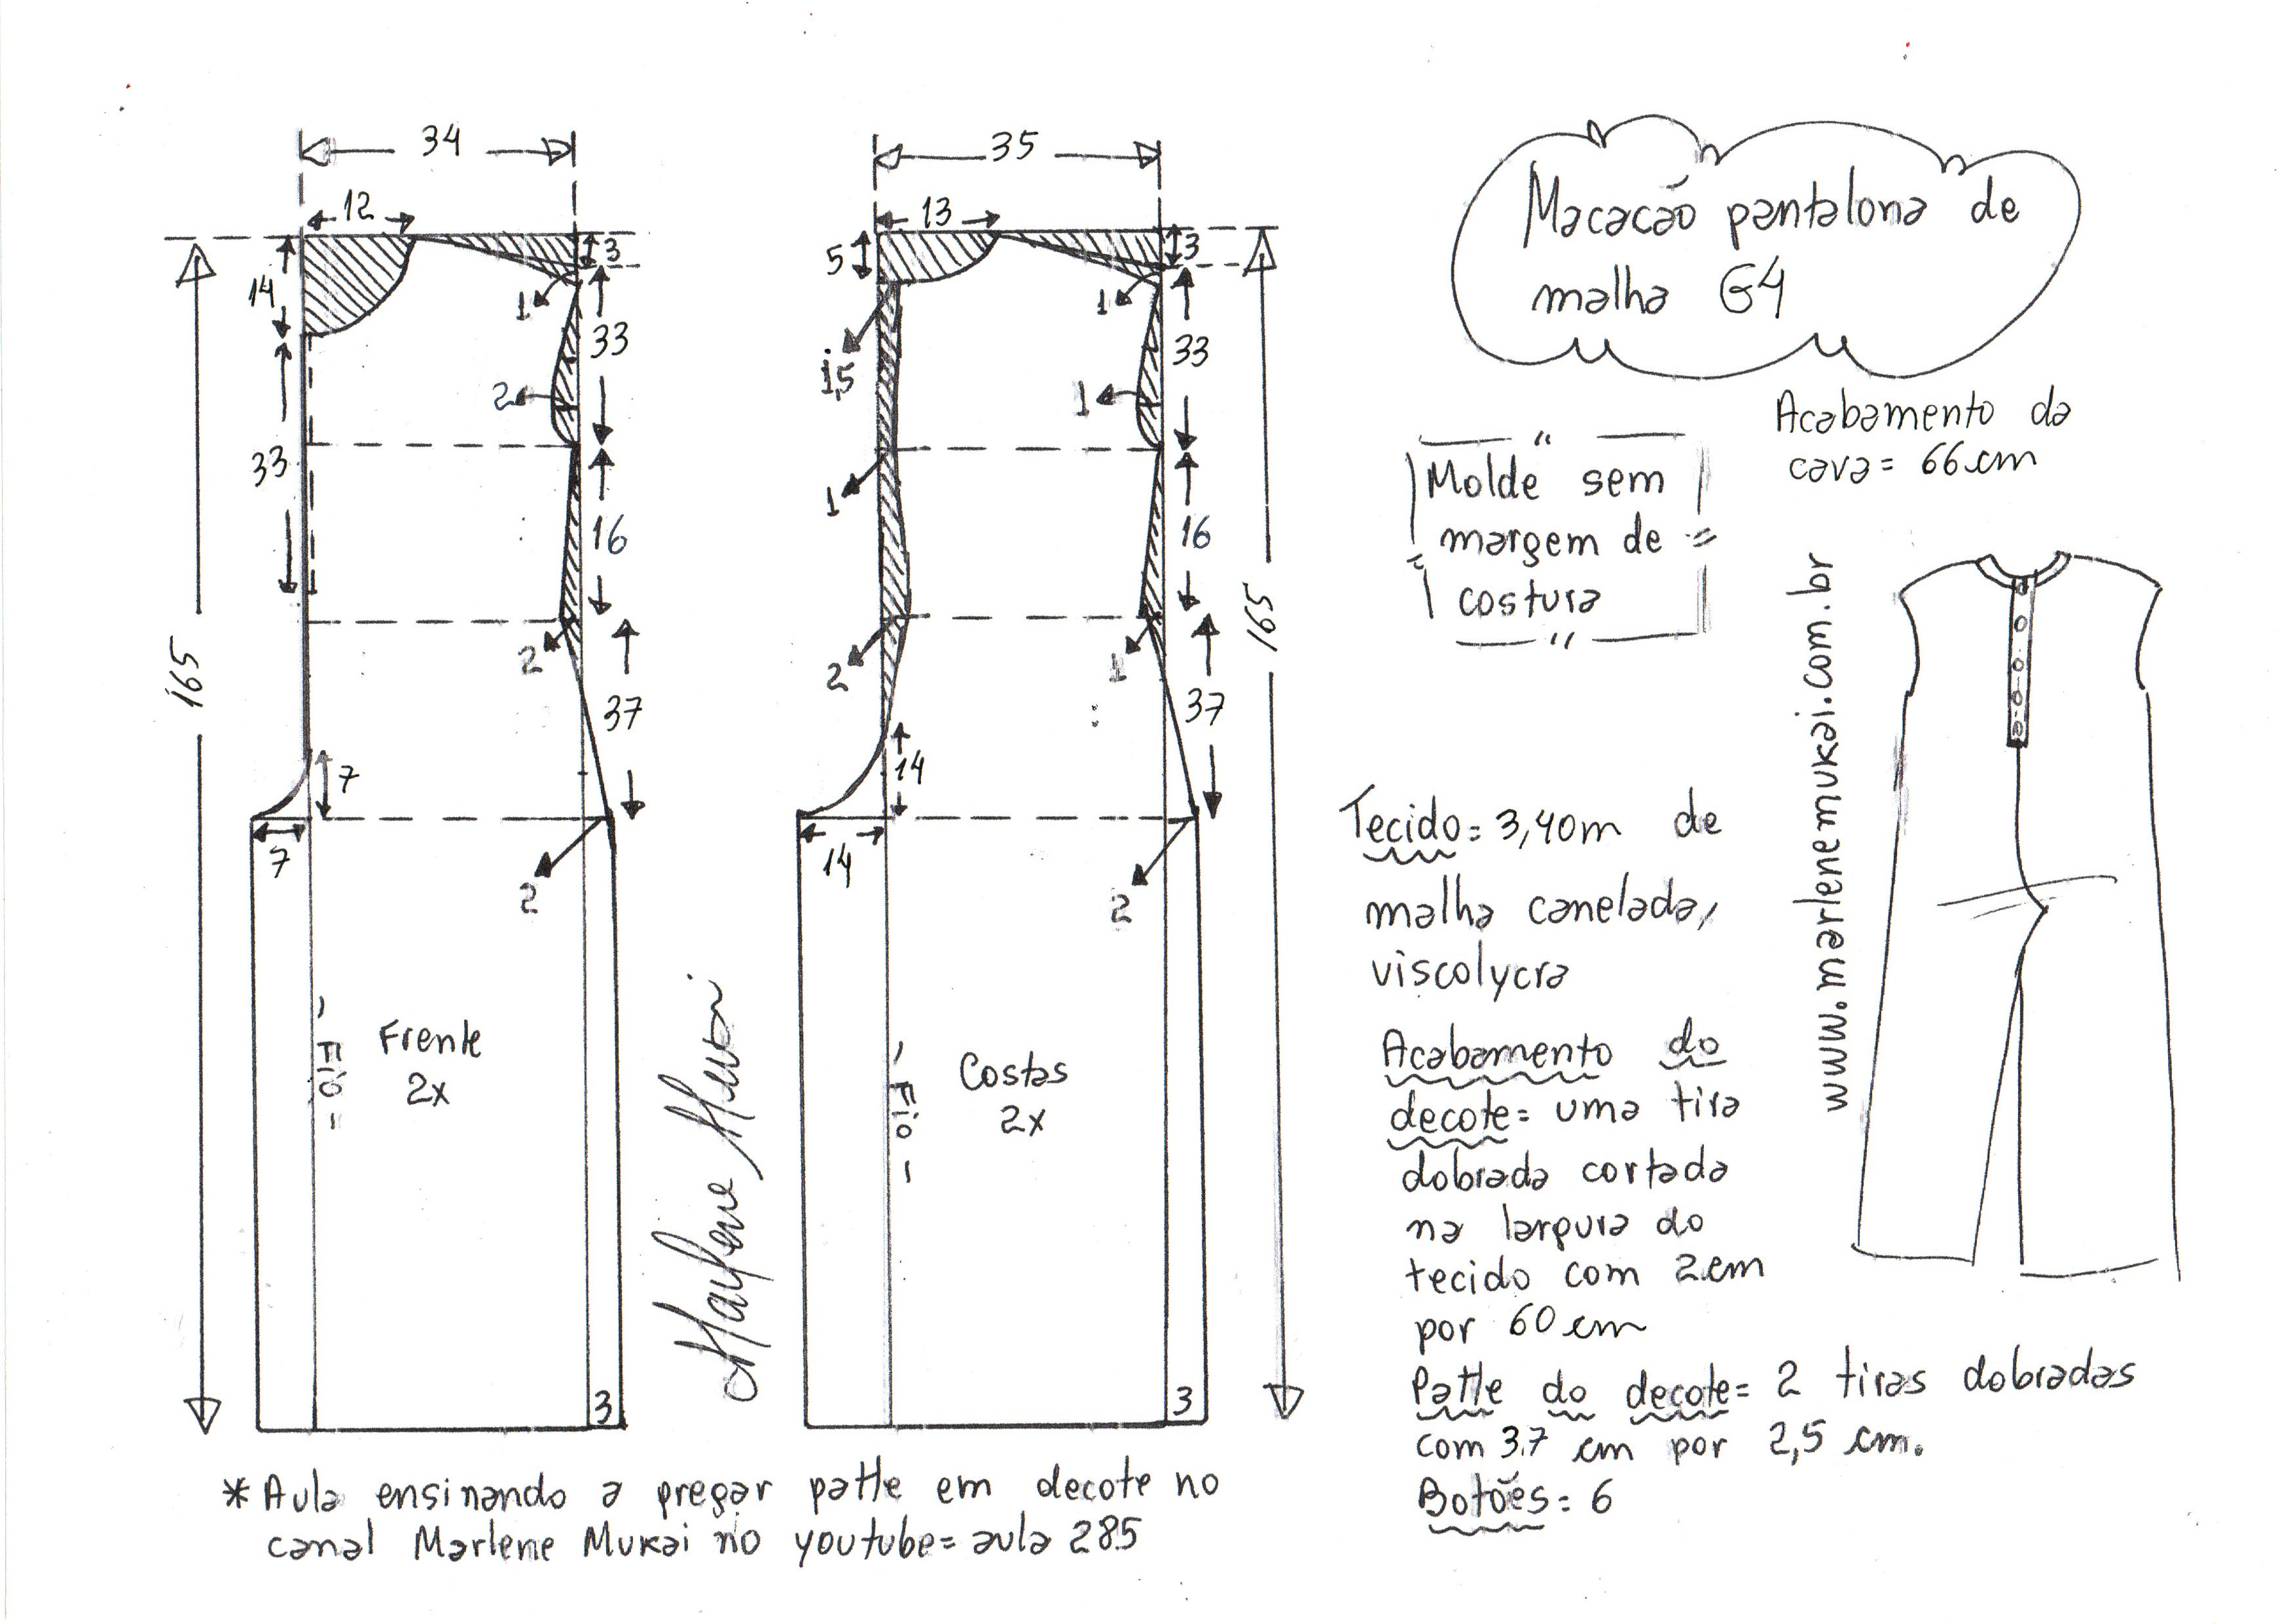 34
12
3
14
1
33
2
33
16
2
37
7
7
2
165
Fio
Frente
2x
3
Marlene Mukai
35
13
5
3
1
1,5
33
1
1
16
2
1
37
14
14
2
165
Fio
Costas
2x
3
* Aula ensinando a pregar patte em decote no
canal Marlene Mukai no youtube= aula 285
Macacão pantalona de
malha G4
Acabamento da
cava= 66cm
"Molde sem
margem de
costura"
www.marlenemukai.com.br
Tecido= 3,40m de
malha canelada,
viscolycra
Acabamento do
decote= uma tira
dobrada cortada
na largura do
tecido com 2cm
por 60cm
Patte do decote= 2 tiras dobradas
com 37 cm por 2,5 cm.
Botões= 6